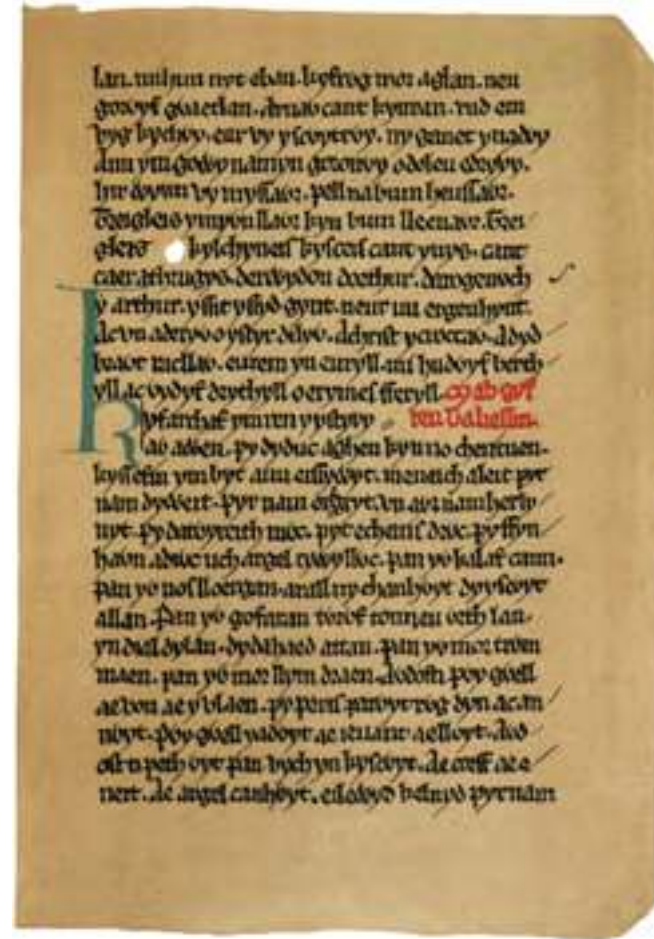 lan. mi hun nyt eban. kyfrwg mor a glan. neu
gorwyf gwaetlan. arnaw cant kynran. rud em
vyg kychwy. eur vy yscwytrwy. ny ganet yn adwy
a uu ym gowy namyn goronwy o doleu edrywy.
hir wynn vy myssawr. pell na bum heussawr.
Treigleis y mywn llawr kyn bum lleenawr. Trei
gleis kylchyneis kysceis cant ynys. cant
caer athrugys. derwydon doethur. darogenwch
y arthur. yssit yssyd gynt. neur mi ergenhynt.
Ac vn aderyw o ystyr dilyw. A christ y croccaw. A dyd
brawt racllaw. eurem yn euryll. mi hudwyf berth
yll ac wydyf drythyll o erymes fferyll. Mabgyf
Kyfarchaf ym ren y ystyry reu Taliessin.
aw awen. py dyduc aghen kyn no cherituen.
kyssefin ym byt a uu eissywyt. meneich aleit pyr
nam dyweit. Pyr nam eregyt. vn awr nam herly
nyt. Py datwyreith mwc. pyt echenis drwc. py ffyn
hawn a diwc uch argel tywyllwc. pan yw kalaf cann.
pan yw nos lloergan. arall ny chanhwyt dyyscwyt
allan. Pan yw gofaran twrwf tonneu wrth lan.
yn dial dylan. dydahaed attan. pan yw mor trwm
maen. pan yw mor llym draen. Awdosti pwy gwell
ae von ae y blaen. py peris parwyt rwg dyn ac an
nwyt. Pwy gwell y adwyt ae ieuanc ae llwyt. Awd
osti peth wyt pan vych yn kyscwyt. Ae corff ae e
neit. Ae argel canhwyt. eilewyd keluyd pyr nam